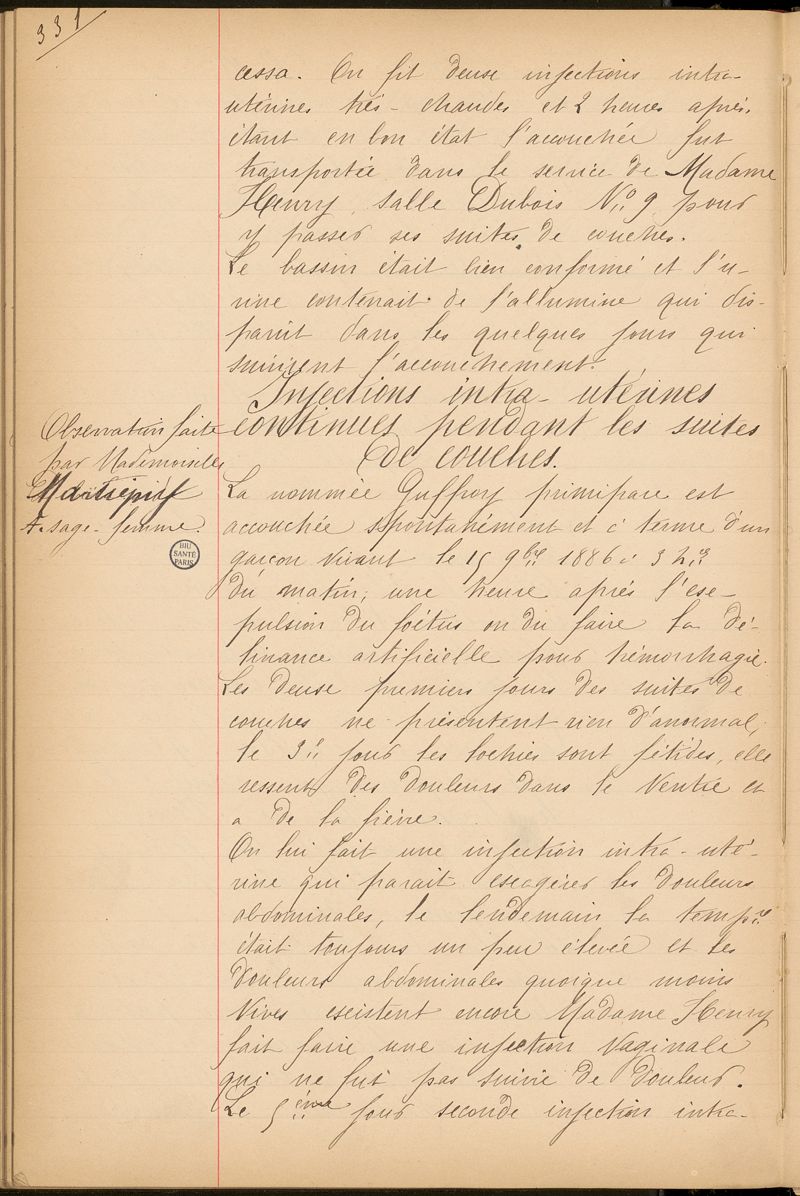 331
cessa. On fit deuxe injections intra-
utérines très-chaudes et 2 heures après,
étant en bon état l'accouchée fut
transportée dans le service de Madame
Henry, salle Dubois No 9 pour
y passer ses suites de couches.
Le bassin était bien conformé et l'u-
rine contenait de l'albumine qui dis-
parût dans les quelques jours qui
suivirent l'accouchement.
Injections intra-utérines
continues pendant les suites
de couches.
Observation faite
par Mademoiselle
F. sage-femme.
BIU
SANTÉ
PARIS
La nommée Guffroy primipare est
accouchée spontanément et à terme d'un
garçon vivant le 15 9bre 1886 à 3 h
du matin, une heure après l'ex-
pulsion du foetus on du faire la dé-
livrance artificielle pour hémorrhagie.
Les deux premiers jours des suites de
couches ne présentent rien d'anormal,
le 3e jour les lochies sont fétides, elle
ressent des douleurs dans le ventre et
a de la fièvre.
On lui fait une injection intra-uté-
rine qui parait exagérer les douleurs
abdominales, le lendemain la tempre
était toujours un peu élevée et les
douleurs abdominales quoique moins
vives existent encore Madame Henry
fait faire une injection vaginale
qui ne fut pas suivie de douleur.
Le 5ème jour seconde injection intra-